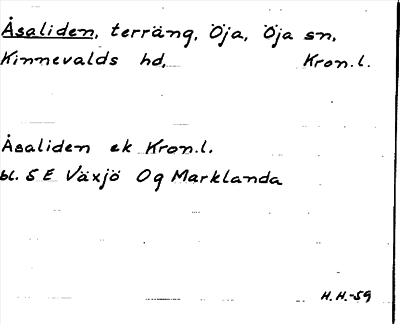 Åsaliden, terräng, Öja, Öja sn,
Kinnevalds hd, Kron.l.
Åsaliden ek Kron.l.
bl. 5 E Växjö Og Marklanda
H.H.-59